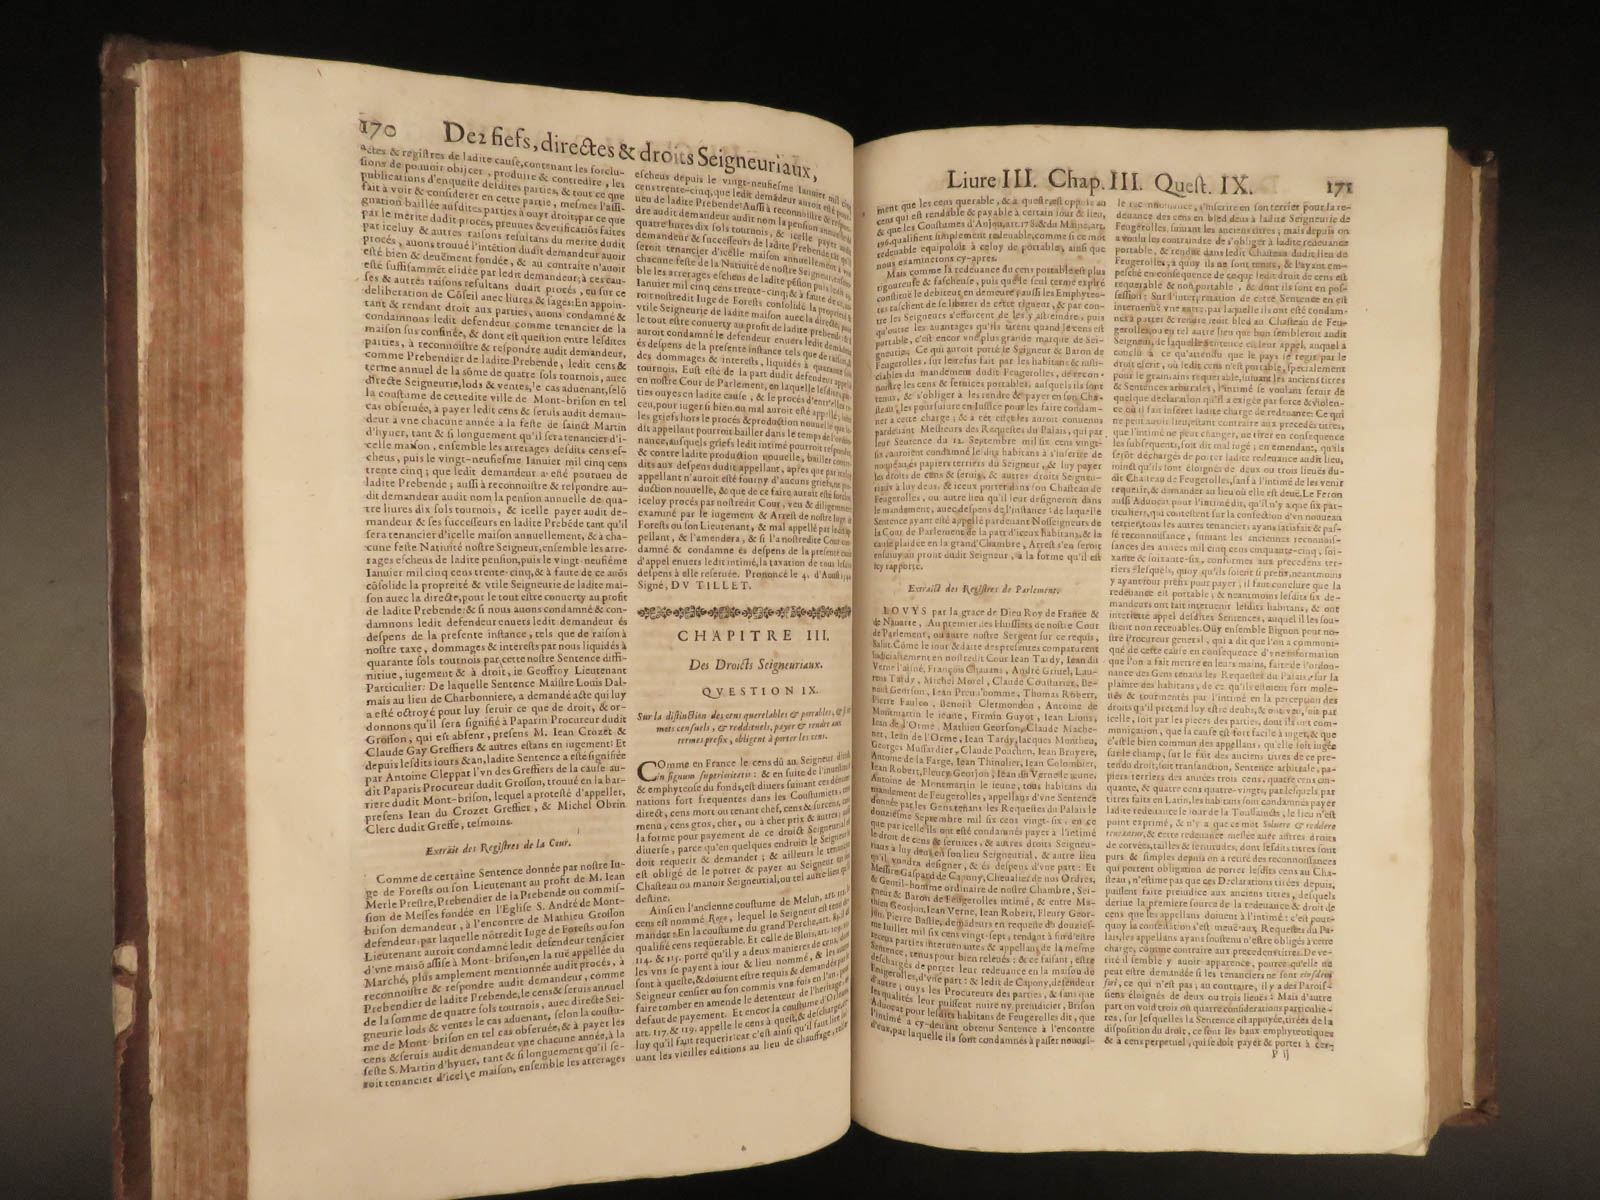 170 Des fiefs, directes & droits Seigneuriaux,
actes & registres de ladite cause, contenant les forclu-
sions de pouuoir obijcer, produire & contredire, les
publications d'enqueste desdites parties, & tout ce que
fait à voir & considerer en cette partie, mesmes l'assi-
gnation baillée ausdites parties à ouyr droit, par ce que
par le mérite dudit procés, preuues & verificatiõs faites
par iceluy & autres raisons resultans du merite dudit
procés, auons trouué l'intẽtiõ dudit demandeur auoir
esté bien & deuëment fondée, & au contraire n'auoir
esté suffisammẽt elidée par ledit demandeur; à ces cau-
ses & autres raisons resultans dudit procés, eu sur ce
deliberation de Cõseil auec liures & sages: En appoin-
tant & rendant droit aux parties, auons condamné &
condamnons ledit defendeur comme tenancier de la
maison sus confinée, & dont est question entre lesdites
parties, à reconnoistre & respondre audit demandeur,
comme Prebendier de ladite Prebende, ledit cens &
terme annuel de la sõme de quatre sols tournois, auec
directe Seigneurie, lods & ventes, le cas aduenant, selõ
la coustume de cettedite ville de Mont-brison en tel
cas obseruée, à payer ledit cens & seruis audit deman-
deur à vne chacune année à la feste de sainct Martin
d'hyuer, tant & si longuement qu'il sera tenancier d'i-
celle maison, ensemble les arrerages desdits cens es-
cheus, puis le vingt-neufiesme Ianuier mil cinq cens
trente cinq; que ledit demandeur a esté pourueu de
ladite Prebende; aussi à reconnoistre & respondre au-
dit demandeur audit nom la pension annuelle de qua-
tre liures dix sols tournois, & icelle payer audit de-
mandeur & ses successeurs en ladite Prebẽde tant qu'il
sera tenancier d'icelle maison annuellement, & à cha-
cune feste Natiuité nostre Seigneur, ensemble les arre-
rages escheus de ladite pension, puis le vingt-neufiéme
Ianuier mil cinq cens trente-cinq, & à faute de ce auõs
cõsolidé la proprieté & vtile Seigneurie de ladite mai-
son auec la directe, pour le tout estre conuerty au profit
de ladite Prebende: & si nous auons condamné & con-
damnons ledit defendeur enuers ledit demandeur és
despens de la presente instance, tels que de raison à
nostre taxe, dommages & interests par nous liquidés à
quarante sols tournois par cette nostre Sentence diffi-
nitiue, iugement & à droit, ie Geoffroy Lieutenant
Particulier. De laquelle Sentence Maistre Louis Dal-
mais au lieu de Charbonniere, a demandé acte qui luy
a esté octroyé pour luy seruir ce que de droit, & or-
donnons qu'il sera signifié à Paparin Procureur dudit
Grosson, qui est absent, presens M. Iean Crozet &
Claude Gay Greffiers & autres estans en iugement: Et
depuis lesdits iours & an, ladite Sentence a esté signifiée
par Antoine Cleppat l'vn des Greffiers de la cause au-
dit Paparis Procureur dudit Grosson, trouué en la bar-
riere dudit Mont-brison, lequel a protesté d'appeller,
presens Iean du Crozet Greffier, & Michel Obrin
Clerc dudit Greffe, tesmoins.
Extrait des Registres de la Cour.
Comme de certaine Sentence donnée par nostre Iu-
ge de Forests ou son Lieutenant au profit de M. Iean
Merle Prestre, Prebendier de la Prebende ou commis-
sion de Messes fondée en l'Eglise S. André de Mont-
brison demandeur, à l'encontre de Mathieu Grosson
defendeur, par laquelle nôtredit Iuge de Forests ou son
Lieutenant auroit condamné ledit defendeur tenãcier
d'vne maisõ assise à Mont-brison, en la ruë appellée du
Marché, plus amplement mentionnée audit procés, à
reconnoistre & respondre audit demandeur, comme
Prebendier de ladite Prebende, le cens & seruis annuel
de la somme de quatre sols tournois, auec directe Sei-
gneurie lods & ventes le cas aduenant, selon la coustu-
me de Mont-brison en tel cas obseruée, & à payer lés
cens & seruis audit demandeur vne chacune année, à la
feste S. Martin d'hyuer, tant & si longuement qu'il se-
roit tenancier d'icelle maison, ensemble les arrerages
escheus depuis le vingt-neufiesme Ianuier mil cinq
cens trente-cinq, que ledit demandeur auroit esté pour-
ueu de ladite Prebende: Aussi à reconnoistre & respon-
dre audit demandeur audit nom la pension annuelle de
quatre liures dix sols tournois, & icelle payer audit
demandeur & successeurs de ladite Prebende tãt qu'il
seroit tenancier d'icelle maison annuellement à vne
chacune feste de la Natiuité de nostre Seigneur, ensem-
ble les arrerages escheus de ladite pẽsion puis ledit
Ianuier mil cinq cens trente-cinq; & à faute de ce, au-
roit nostredit Iuge de Forests consolidé la proprieté &
vtile Seigneurie de ladite maison auec la directe, pour
le tout estre conuerty au profit de ladite prebende; & si
auroit condamné le defendeur enuers ledit demandeur
és despens de la presente instance tels que de raison, &
des dommages & interests, liquidés à quarante sols
tournois. Eust esté de la part dudit defendeur appellé
en nostre Cour de Parlement, en laquelle lesdites par-
ties ouyes en ladite cause, & le procés d'entr'elles re-
ceu, pour iuger si bien ou mal auroit esté appellé,
les griefs hors le procés & production nouuelle que le-
dit appellant pourroit bailler dans le temps de l'ordon-
nance, ausquels griefs ledit intimé pourroit respondre,
& contre ladite production nouuelle, bailler contre-
dits aux despens dudit appellant, apres que par iceluy
appellant n'auroit esté fourny d'aucuns griefs, ne pro-
duction nouuelle, & que de ce faire, auroit esté forclos,
iceluy procés par nostredit Cour, veu & diligemment
examiné par le iugement & Arrest de nostre Iuge de
Forests ou son Lieutenant, & mal appellé par ledit ap-
pellant, & l'amendera, & si l'a nostredite Cour con-
damné & condamne és despens de la presente cause
d'appel enuers ledit intimé, la taxation de tous lesdits
despens à elle reseruée. Prononcé le 4. d'Aoust
Signé, DV TILLET.
CHAPITRE III.
Des Droicts Seigneuriaux.
QVESTION IX.
Sur la distinction des cens querelables & portables, & si les
mots censuels, & reddituels, payer & rendre aux
termes prefix, obligent à porter les cens.
COmme en France le cens dû au Seigneur direct,
in signum superioritatis: & en suite de l'inuestiture
& emphyteose du fonds, est diuers suiuant ces dénomi-
nations fort frequentes dans les Coustumiers, cens
direct, cens mort ou tenant chef, cens & surcens, cens
menu, cens gros, cher, ou à cher prix & autres;
la forme pour payement de ce droict Seigneurial est
diuerse, parce qu'en quelques endroits le Seigneur
doit requerir & demander; & ailleurs le tenancier
est obligé de le porter & payer au Seigneur en son
Chasteau ou manoir Seigneurial, ou tel autre lieu qu'il
destine.
Ainsi en l'ancienne coustume de Melun, art.
cens est nommé Rogo, lequel le Seigneur est tenu de-
mander. En la coustume du grand Perche, art. 85. il est
qualifié cens requerable. Et celle de Blois, art. 109. 110.
114. & 115. porté qu'il y a deux manieres de cens, dont
les vns se payent à iour & lieu nommé, & les autres
sont à queste, & doiuent estre requis & demandés par le
Seigneur censier ou son commis vne fois en l'an, pour
faire tomber en amende le detenteur de l'heritage, à
defaut de payement. Et encor la coustume d'Orleans,
art. 117. & 119. appelle le cens à quest, & descharge,
luy qu'il faut requerir: car c'est ainsi qu'il faut lire sui-
uant les vieilles editions au lieu de chauffage,
Liure III. Chap. III. Quest. IX. 171
ment que les cens querable, & à queste, est opposé au
cens qui est rendable & payable à certain iour & lieu,
& que les Coustumes d'Anjou, art. 178. & du Maine, art.
196. qualifient simplement redeuable, comme si ce mot
redeuable equipoloit à celuy de portable, ainsi que
nous examinerons cy-apres.
Mais comme la redeuance du cens portable est plus
rigoureuse & fascheuse, puis que le seul terme expiré
constitue le debiteur en demeure; aussi les Emphyteo-
tes taschent de se liberer de cette rigueur, & par con-
tre les Seigneurs s'efforcent de les y astreindre, puis
qu'outre les auantages qu'ils tirent quand le cens est
portable, c'est encor vne plus grande marque de Sei-
gneurie. Ce qui auroit porté le Seigneur & Baron de
Feugerolles, sur le refus fait par les habitans & iusti-
ciables du mandement dudit Feugerolles, de recon-
noistre les cens & seruices portables, ausquels ils sont
tenus, & s'obliger à les rendre & payer en son Cha-
steau, les poursuiure en Iustice pour les faire condam-
ner à cette charge; & à cét effect les auroit conuenus
pardeuant Messieurs des Requestes du Palais, qui par
leur Sentence du 12. Septembre mil six cens vingt-
six, auroient condamné lesdits habitans à s'inscrire de
nouueau és papiers terriers du Seigneur, & luy payer
les droits de cens & seruis, & autres droits Seigneu-
riaux à luy deus, & iceux porter dans son Chasteau de
Feugerolles, ou autre lieu qu'il leur designeroit dans
le mandement, auec despens de l'instance: de laquelle
Sentence ayant esté appellé pardeuant Nosseigneurs de
la Cour de Parlement de la part d'iceux habitans, & la
cause plaidée en la grand'Chambre, Arrest s'en seroit
ensuiuy au profit dudit Seigneur, à la forme qu'il est
icy rapporté.
Extraict des Registres de Parlement.
LOVYS par la grace de Dieu Roy de France &
de Nauarre, Au premier des Huissiers de nostre Cour
de Parlement, ou autre nostre Sergent sur ce requis,
Salut. Cõme le iour & date des presentes comparurent
Iudiciairement en nostredit Cour Iean Tardy, Iean du
Verne l'aisné, François Chauans, André Griuel, Lau-
rens Tardy, Michel Morel, Claude Cousturier, Be-
noist Georjon, Iean Preud'homme, Thomas Robert,
Pierre Faulco, Benoist Clermondon, Antoine de
Montmartin le ieune, Firmin Guyot, Iean Lions,
Iean de l'Orme, Mathieu Georjon, Claude Mache-
net, Iean de l'Orme, Iean Tardy, Iacques Montheu,
Georges Mussardier, Claude Pouchon, Iean Bruyere,
Antoine de la Farge, Iean Thinolier, Iean Colombier,
Iean Robert, Fleury Georjon, Iean du Verne le ieune,
Antoine de Montmartin le ieune, tous habitans du
mandement de Feugerolles, appellans d'vne Sentence
donnée par les Gens tenans les Requestes du Palais le
douziéme Septembre mil six cens vingt-six, en ce
que par icelle ils ont esté condamnés payer à l'intimé
le droit de cens & seruices, & autres droits Seigneu-
riaux à luy deus en son lieu Seigneurial, & autre lieu
qu'il voudra designer, & és despens d'vne part: Et
Messire Gaspard de Capony, Cheualier de nos Ordres,
& Gentil-homme ordinaire de nostre Chambre, Sei-
gneur & Baron de Feugerolles intimé, & entre Ma-
thieu Georjon, Iean Verne, Iean Robert, Fleury Geor-
jon, Pierre Basile, demãdeurs en requeste du douzies-
me Iuillet mil six cens vingt-sept, tendant à fin d'estre
receus parties interuenantes & appellans de la mesme
Sentence, tenus pour bien releués; & ce faisant, estre
deschargés de porter leur redeuance en la maison de
Feugerolles, d'vne part: & ledit de Capony, defendeur
d'autre; ouys les Procureurs des parties, & sans que
les qualités leur puissent nuire ny preiudicier, Brison
Aduocat pour lesdits habitans de Feugerolles dit, que
l'intimé a cy-deuant obtenu Sentence à l'encontre
d'eux, par laquelle ils sont condamnés à passer nouuel-
le reconnoissance, s'inscrire en son terrier pour la re-
deuance des cens en bled deus à ladite Seigneurie de
Feugerolles, suiuant les anciens titres; mais depuis on
a voulu les contraindre de s'obliger à ladite redeuance
portable, & rendue dans ledit Chasteau dudit lieu de
Feugerolles, à quoy ils ne sont tenus, & l'ayant em-
pesché en consequence de ce que ledit droit de cens est
requerable & non portable, & dont ils sont en pos-
session: Sur l'interpretation de cette Sentence en est
interuenuë vne autre, par laquelle ils ont esté condam-
nés à porter & rendre ledit bled au Chasteau de Feu-
gerolles, ou en tel autre lieu que bon sembleroit audit
Seigneur, de laquelle Sentence est leur appel, auquel a
conclu à ce qu'attendu que le pays se regit par le
droit escrit, où ledit cens n'est portable, specialement
pour le grain, ains requerable, suiuant les anciens titres
& Sentences arbitrales, l'intimé se voulant seruir de
quelque declaration qu'il a exigée par force & violen-
ce où il a fait inserer ladite charge de redeuance: Ce qui
ne peut auoir lieu, estant contraire aux precedés titres,
que l'intimé ne peut changer, ne tirer en consequence
les subsequents, soit dit mal iugé; en emendant, qu'ils
seroit déchargés de porter ladite redeuance audit lieu,
joinct qu'ils sont éloignés de deux ou trois lieuës du-
dit Chasteau de Feugerolles, sauf à l'intimé de les venir
requerir, & demander au lieu où elle est deuë. Le Feron
aussi Aduocat pour l'intimé dit, qu'il n'y a que six par-
ticuliers, qui contestent sur la confection d'vn nouueau
terrier, tous les autres tenanciers ayans satisfait & pas-
sé reconnoissance, suiuant les anciennes reconnois-
sances des années mil cinq cens cinquante-cinq, soi-
xante & soixante-six, conformes aux precedens ter-
riers: lesquels, quoy qu'ils soient si prefix, neantmoins
y ayant iour prefix pour payer, il faut conclure que la
redeuance est portable; & neantmoins lesdits six de-
mandeurs ont fait interuenir lesdits habitans, & ont
interietté appel desdites Sentences, auquel il les sou-
stient non receuables. Oüy ensemble Bignon pour no-
stre Procureur general, qui a dit que l'on a communi-
qué de cette cause en consequence d'vne information
que l'on a fait mettre en leurs mains, faite de l'ordon-
nance des Gens tenans les Requestes du Palais, sur la
plainte des habitans, de ce qu'ils estoient fort mole-
stés & tourmentés par l'intimé en la perception des
droits qu'il pretend luy estre deubs, & ont veu, soit par
icelle, soit par les pieces des parties, dont ils ont com-
munication, que la cause est fort facile à iuger, & que
c'est le bien commun des appellans, qu'elle soit iugée
sur le champ, sur le fait des anciens titres de ce pre-
tendu droit, soit transaction, Sentence arbitrale, pa-
piers terriers des années trois cens, quatre cens cin-
quante, & quatre cens quatre-vingts, par lesquels par
titres faits en Latin, les habitans sont condamnés payer
ladite redeuance le iour de la Toussaincts, le lieu n'est
point exprimé, & n'y a que ce mot Soluere & reddere
teneantur, & cette redeuance meslée auec autres droits
de coruées, tailles & seruitudes, dont lesdits titres sont
purs & simples depuis on a retiré des reconnoissances
qui portent obligation de porter lesdits cens au Cha-
steau, n'estime pas que ces Declarations tirées depuis,
puissent faire preiudice aux anciens titres, desquels
dériue la premiere source de la redeuance & droit de
cens que les appellans doiuent à l'intimé: c'est pour-
quoy la contestatiõ s'est meuë aux Requestes du Pa-
lais, les appellans ayans soustenu n'estre obligés à cette
charge, comme contraire aux precedens titres. De ve-
rité il semble y auoir apparence, pource qu'elle ne
peut estre demandée si les tenanciers ne sont eiusdem
fori, ce qui n'est pas; au contraire, il y a des Parois-
siens éloignés de deux ou trois lieuës: Mais d'autre
part on void trois ou quatre considerations particulie-
res, sur lesquelles la Sentence est appuyée, tirées de la
disposition du droit, ce sont les baux emphyteotiques
& à cens perpetuel, qui se doit payer & porter à cer-
P ij